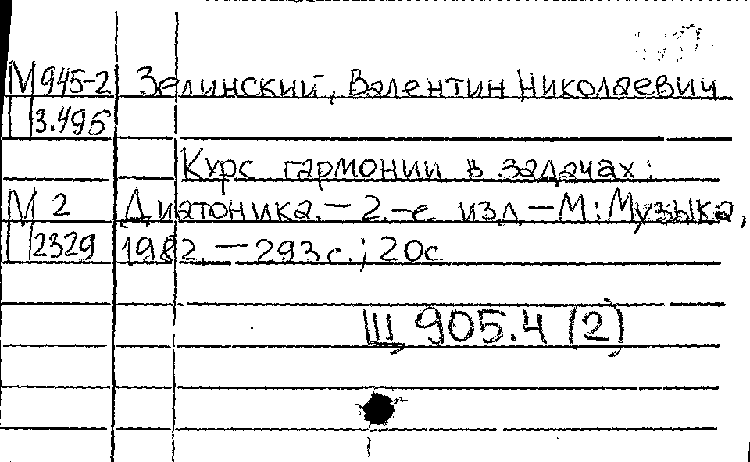 М 945-2 Зелинский, Валентин Николаевич
3.495
Курс гармонии в задачах:
М 2 Диатоника. — 2.-е изд. — М: Музыка,
2329 1982. — 293 с.; 20 с
Щ 905.4 (2)